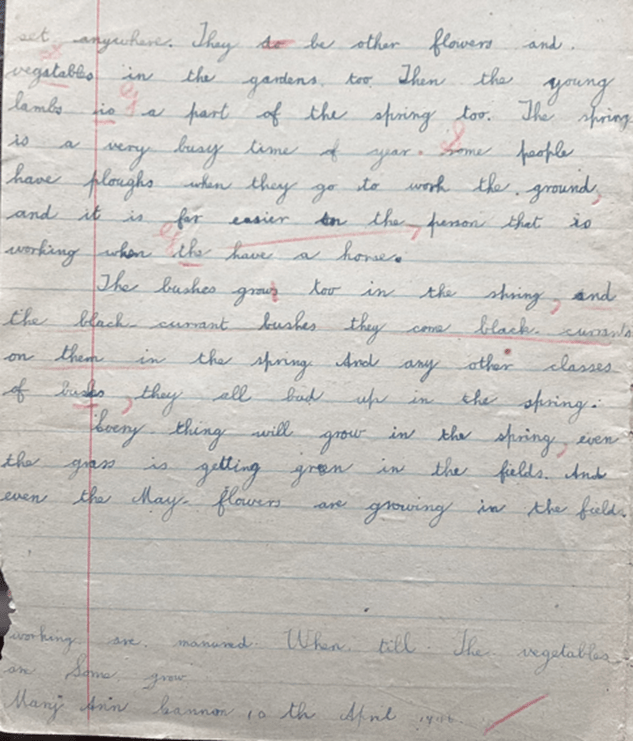 set anywhere. They to be other flowers and
vegatables in the gardens too. Then the young
lambs is a part of the spring too. The spring
is a very busy time of year. some people
have ploughs when they go to work the ground,
and it is far easier on the, person that is
working when the have a horse.
The bushes grows too in the shring, and
the black-currant bushes they come black-currants
on them in the spring. And any other classes
of buses, they all bud up in the spring.
Every thing will grow in the spring, even
the grass is getting green in the fields. And
even the May-flowers are growing in the field.
working are manured. When till The vegetables
are Some grow
Mary Ann Cannon 10 th April